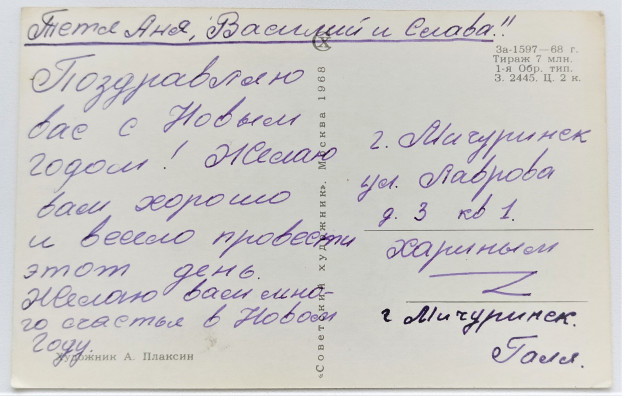 Тетя Аня, Василий и Слава!!
Поздравляю
вас с Новым
годом! Желаю
вам хорошо
и весело провести
этот день.
Желаю вам мно-
го счастья в Новом
Году.
Художник А. Плаксин
«Советский художник». Москва 1968
За-1597—68 г.
Тираж 7 млн.
1-я Обр. тип.
З. 2445. Ц. 2 к.
г. Мичуринск
ул. Лаврова
д. 3 кв 1.
Хариным
г Мичуринск.
Галя.